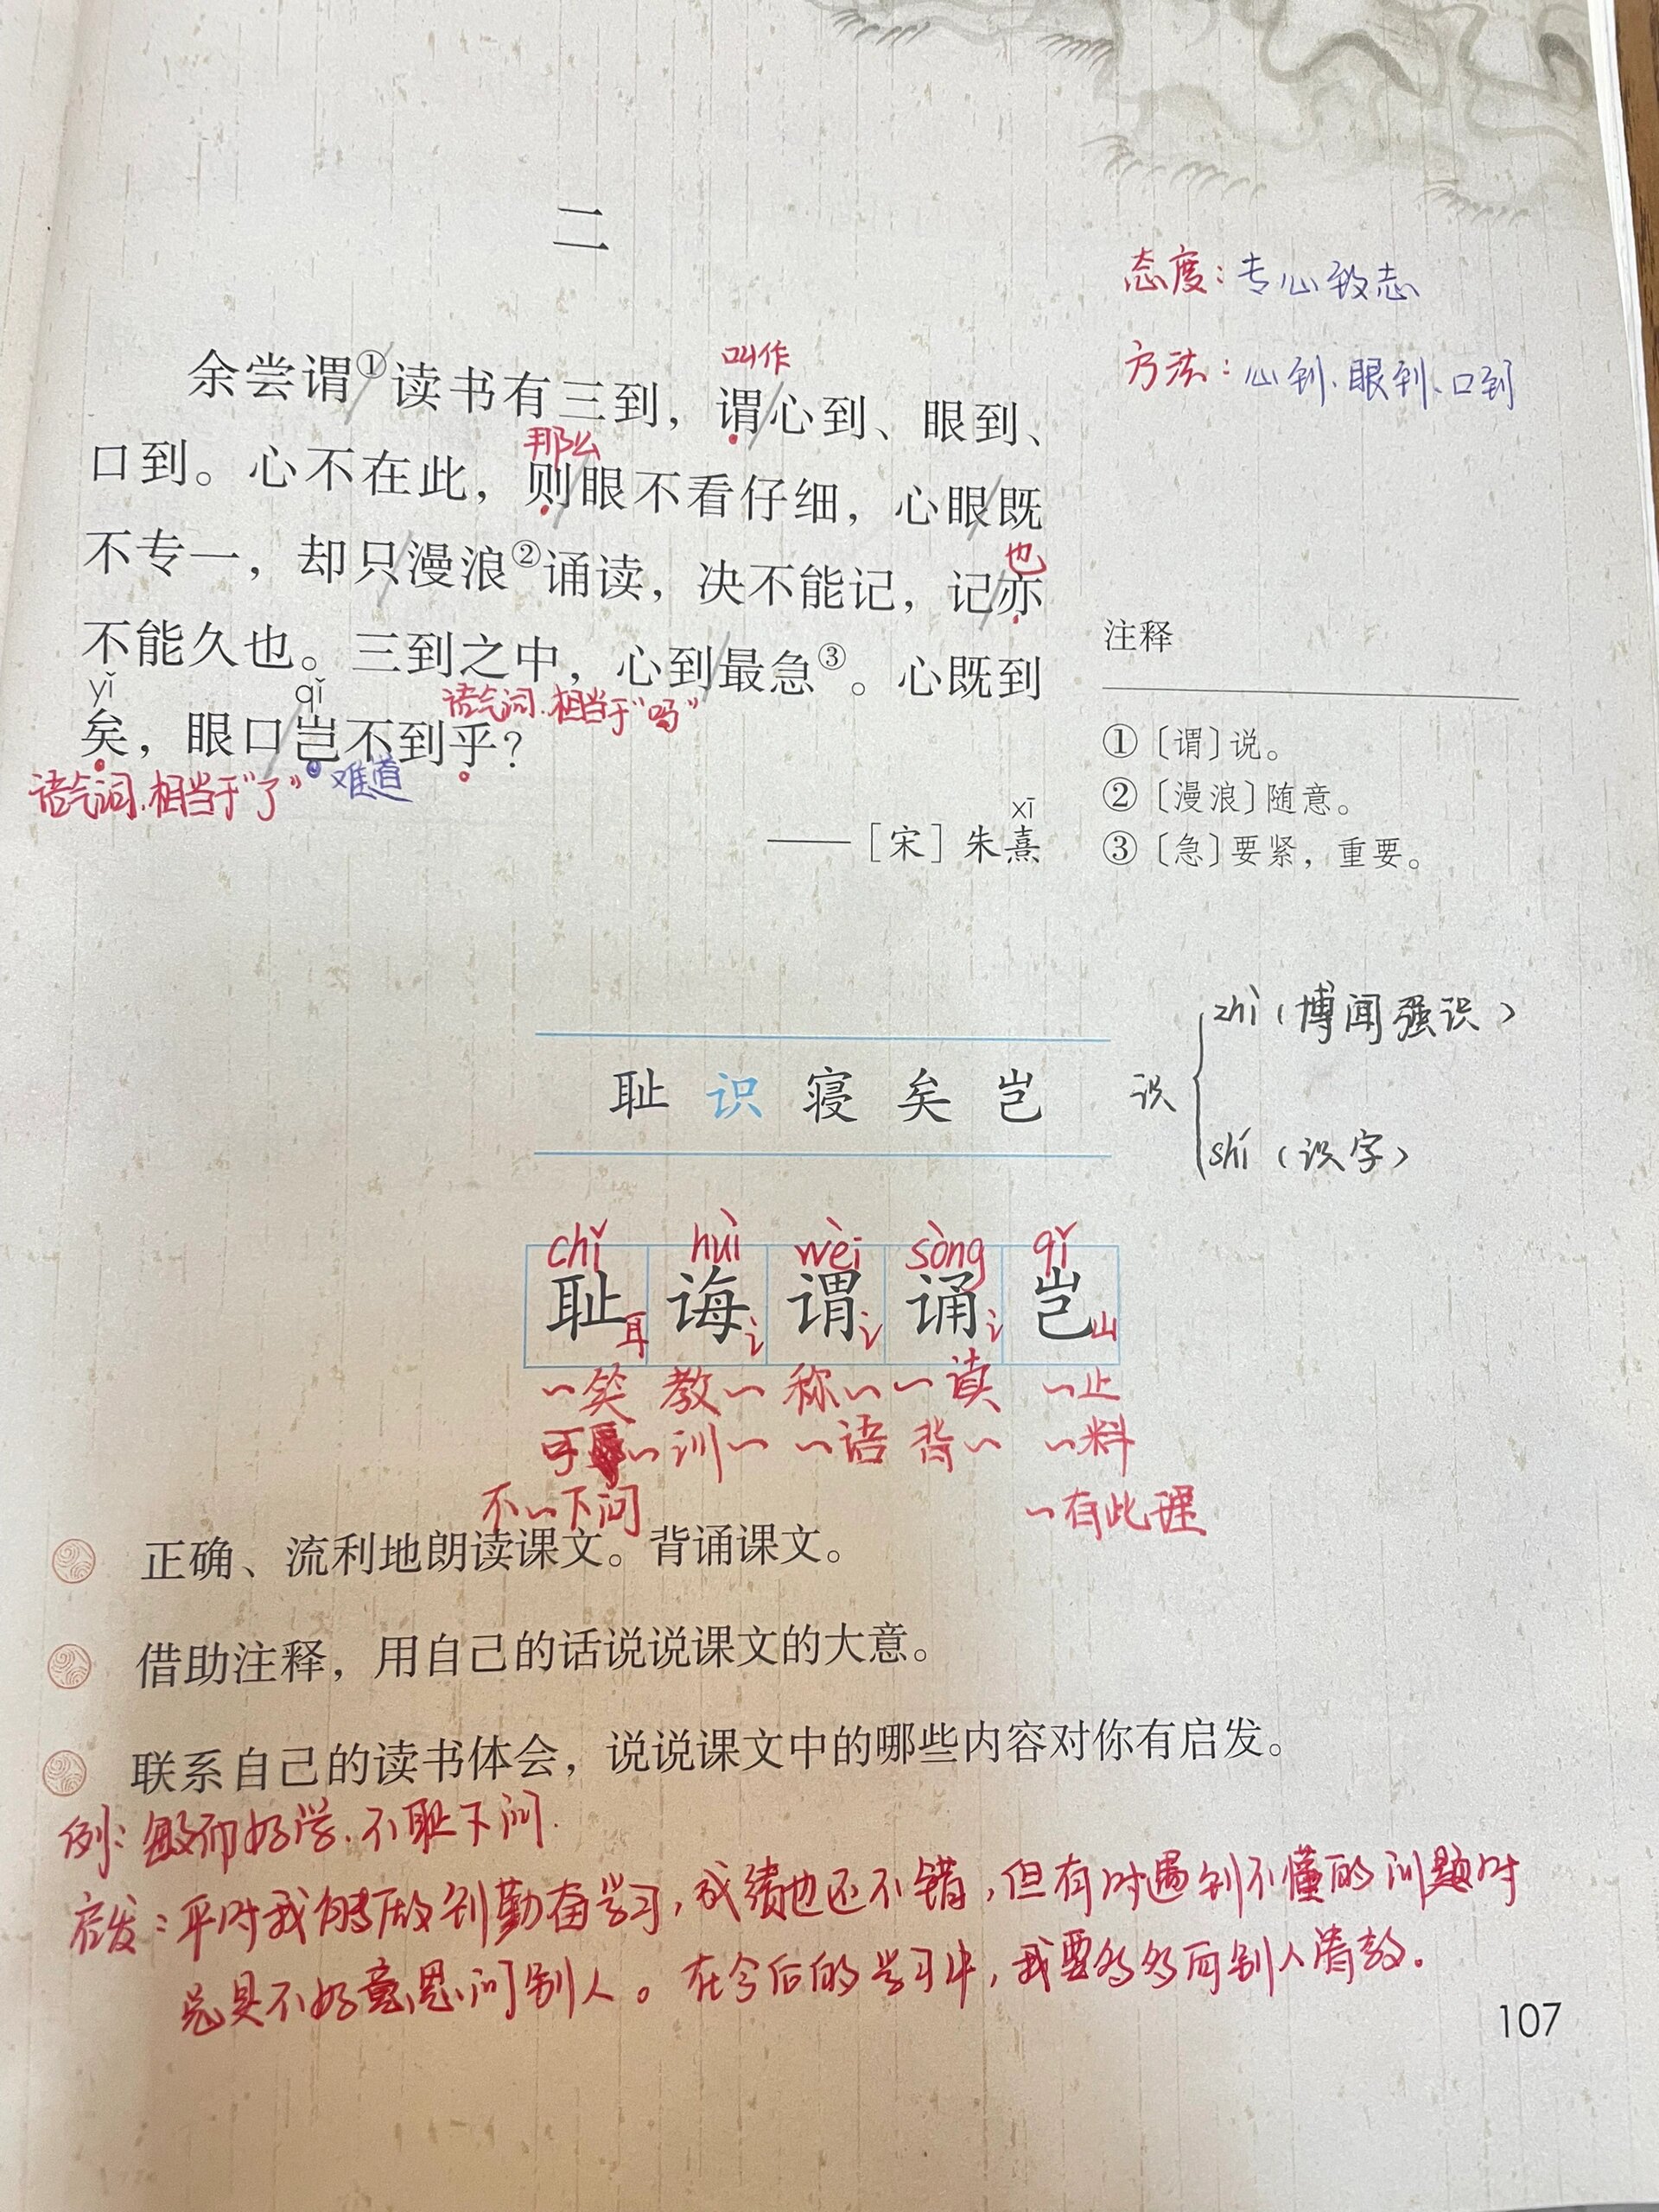 二
态度：专心致志
方法：心到、眼到、口到
叫作
余尝谓①读书有三到，谓心到、眼到、
那么
口到。心不在此，则眼不看仔细，心眼既
也
不专一，却只漫浪②诵读，决不能记，记亦
不能久也。三到之中，心到最急③。心既到
yǐ qǐ 语气词.相当于"吗"
矣，眼口岂不到乎？
语气词.相当于"了" 难道
xī
——［宋］朱熹
注释
①〔谓〕说。
②〔漫浪〕随意。
③〔急〕要紧，重要。
耻 识 寝 矣 岂
识
zhì（博闻强识）
shí（识字）
chǐ huì wèi sòng qǐ
耻 诲 谓 诵 岂
耳 讠 讠 讠 山
~笑 教~ 称~ ~读 ~止
可~ 训~ ~语 背~ ~料
不~下问 ~有此理
正确、流利地朗读课文。背诵课文。
借助注释，用自己的话说说课文的大意。
联系自己的读书体会，说说课文中的哪些内容对你有启发。
例：敏而好学.不耻下问.
启发：平时我能做到勤奋学习，成绩也还不错，但有时遇到不懂的问题时
总是不好意思问别人。在今后的学习中，我要多多向别人请教。
107